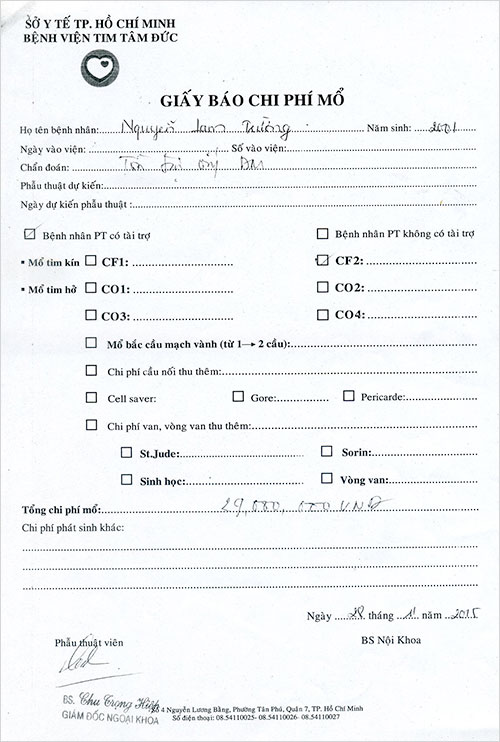 SỞ Y TẾ TP. HỒ CHÍ MINH
BỆNH VIỆN TIM TÂM ĐỨC
GIẤY BÁO CHI PHÍ MỔ
Họ tên bệnh nhân: Nguyễn Lam Trường Năm sinh: 2001
Ngày vào viện: Số vào viện:
Chẩn đoán: Tồn tại ống ĐM
Phẫu thuật dự kiến:
Ngày dự kiến phẫu thuật :
Bệnh nhân PT có tài trợ Bệnh nhân PT không có tài trợ
• Mổ tim kín CF1: CF2:
• Mổ tim hở CO1: CO2:
CO3: CO4:
Mổ bắc cầu mạch vành (từ 1→ 2 cầu):
Chi phí cầu nối thu thêm:
Cell saver: Gore: Pericarde:
Chi phí van, vòng van thu thêm:
St.Jude: Sorin:
Sinh học: Vòng van:
Tổng chi phí mổ: 29,000,000 VNĐ
Chi phí phát sinh khác:
Ngày 28 tháng 11 năm 2015
Phẫu thuật viên BS Nội Khoa
BS. Chu Trọng Hiệp
GIÁM ĐỐC NGOẠI KHOA
Số 4 Nguyễn Lương Bằng, Phường Tân Phú, Quận 7, TP. Hồ Chí Minh
Số điện thoại: 08.54110025- 08.54110026 08.54110027